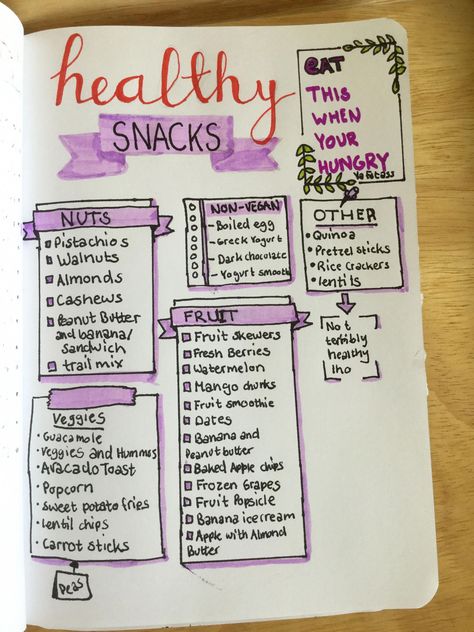 healthy
SNACKS
EAT
THIS
WHEN
YOUR
HUNGRY
Ya Fatass
NUTS
Pistachios
Walnuts
Almonds
Cashews
Peanut Butter
and banana/
sandwich
trail mix
NON-VEGAN
- Boiled egg
- Greek Yogurt
- Dark chocolate
- Yogurt smooth
OTHER
• Quinoa
• Pretzel sticks
• Rice Crackers
• lentils
Not
terribly
healthy
Iho
FRUIT
Fruit skewers
Fresh Berries
Watermelon
Mango chunks
Fruit smoothie
Dates
Banana and
Peanut butter
Baked Apple chips
Frozen Grapes
Fruit Popsicle
Banana icecream
Apple with Almond
Butter
Veggies
• Guacamole
• Veggies and Hummus
• Avacado Toast
• Popcorn
• Sweet potato fries
• Lentil chips
• Carrot sticks
Peas